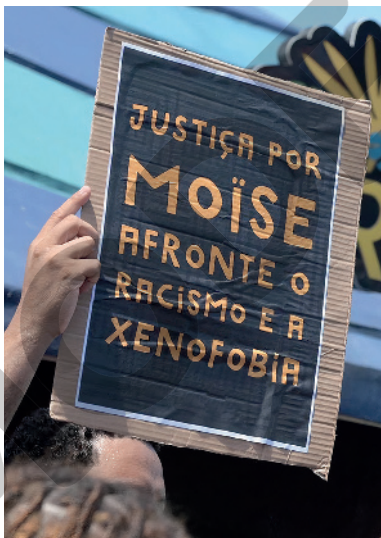 JUSTIÇA POR
MOÏSE
AFRONTE O
RACISMO E A
XENOFOBIA